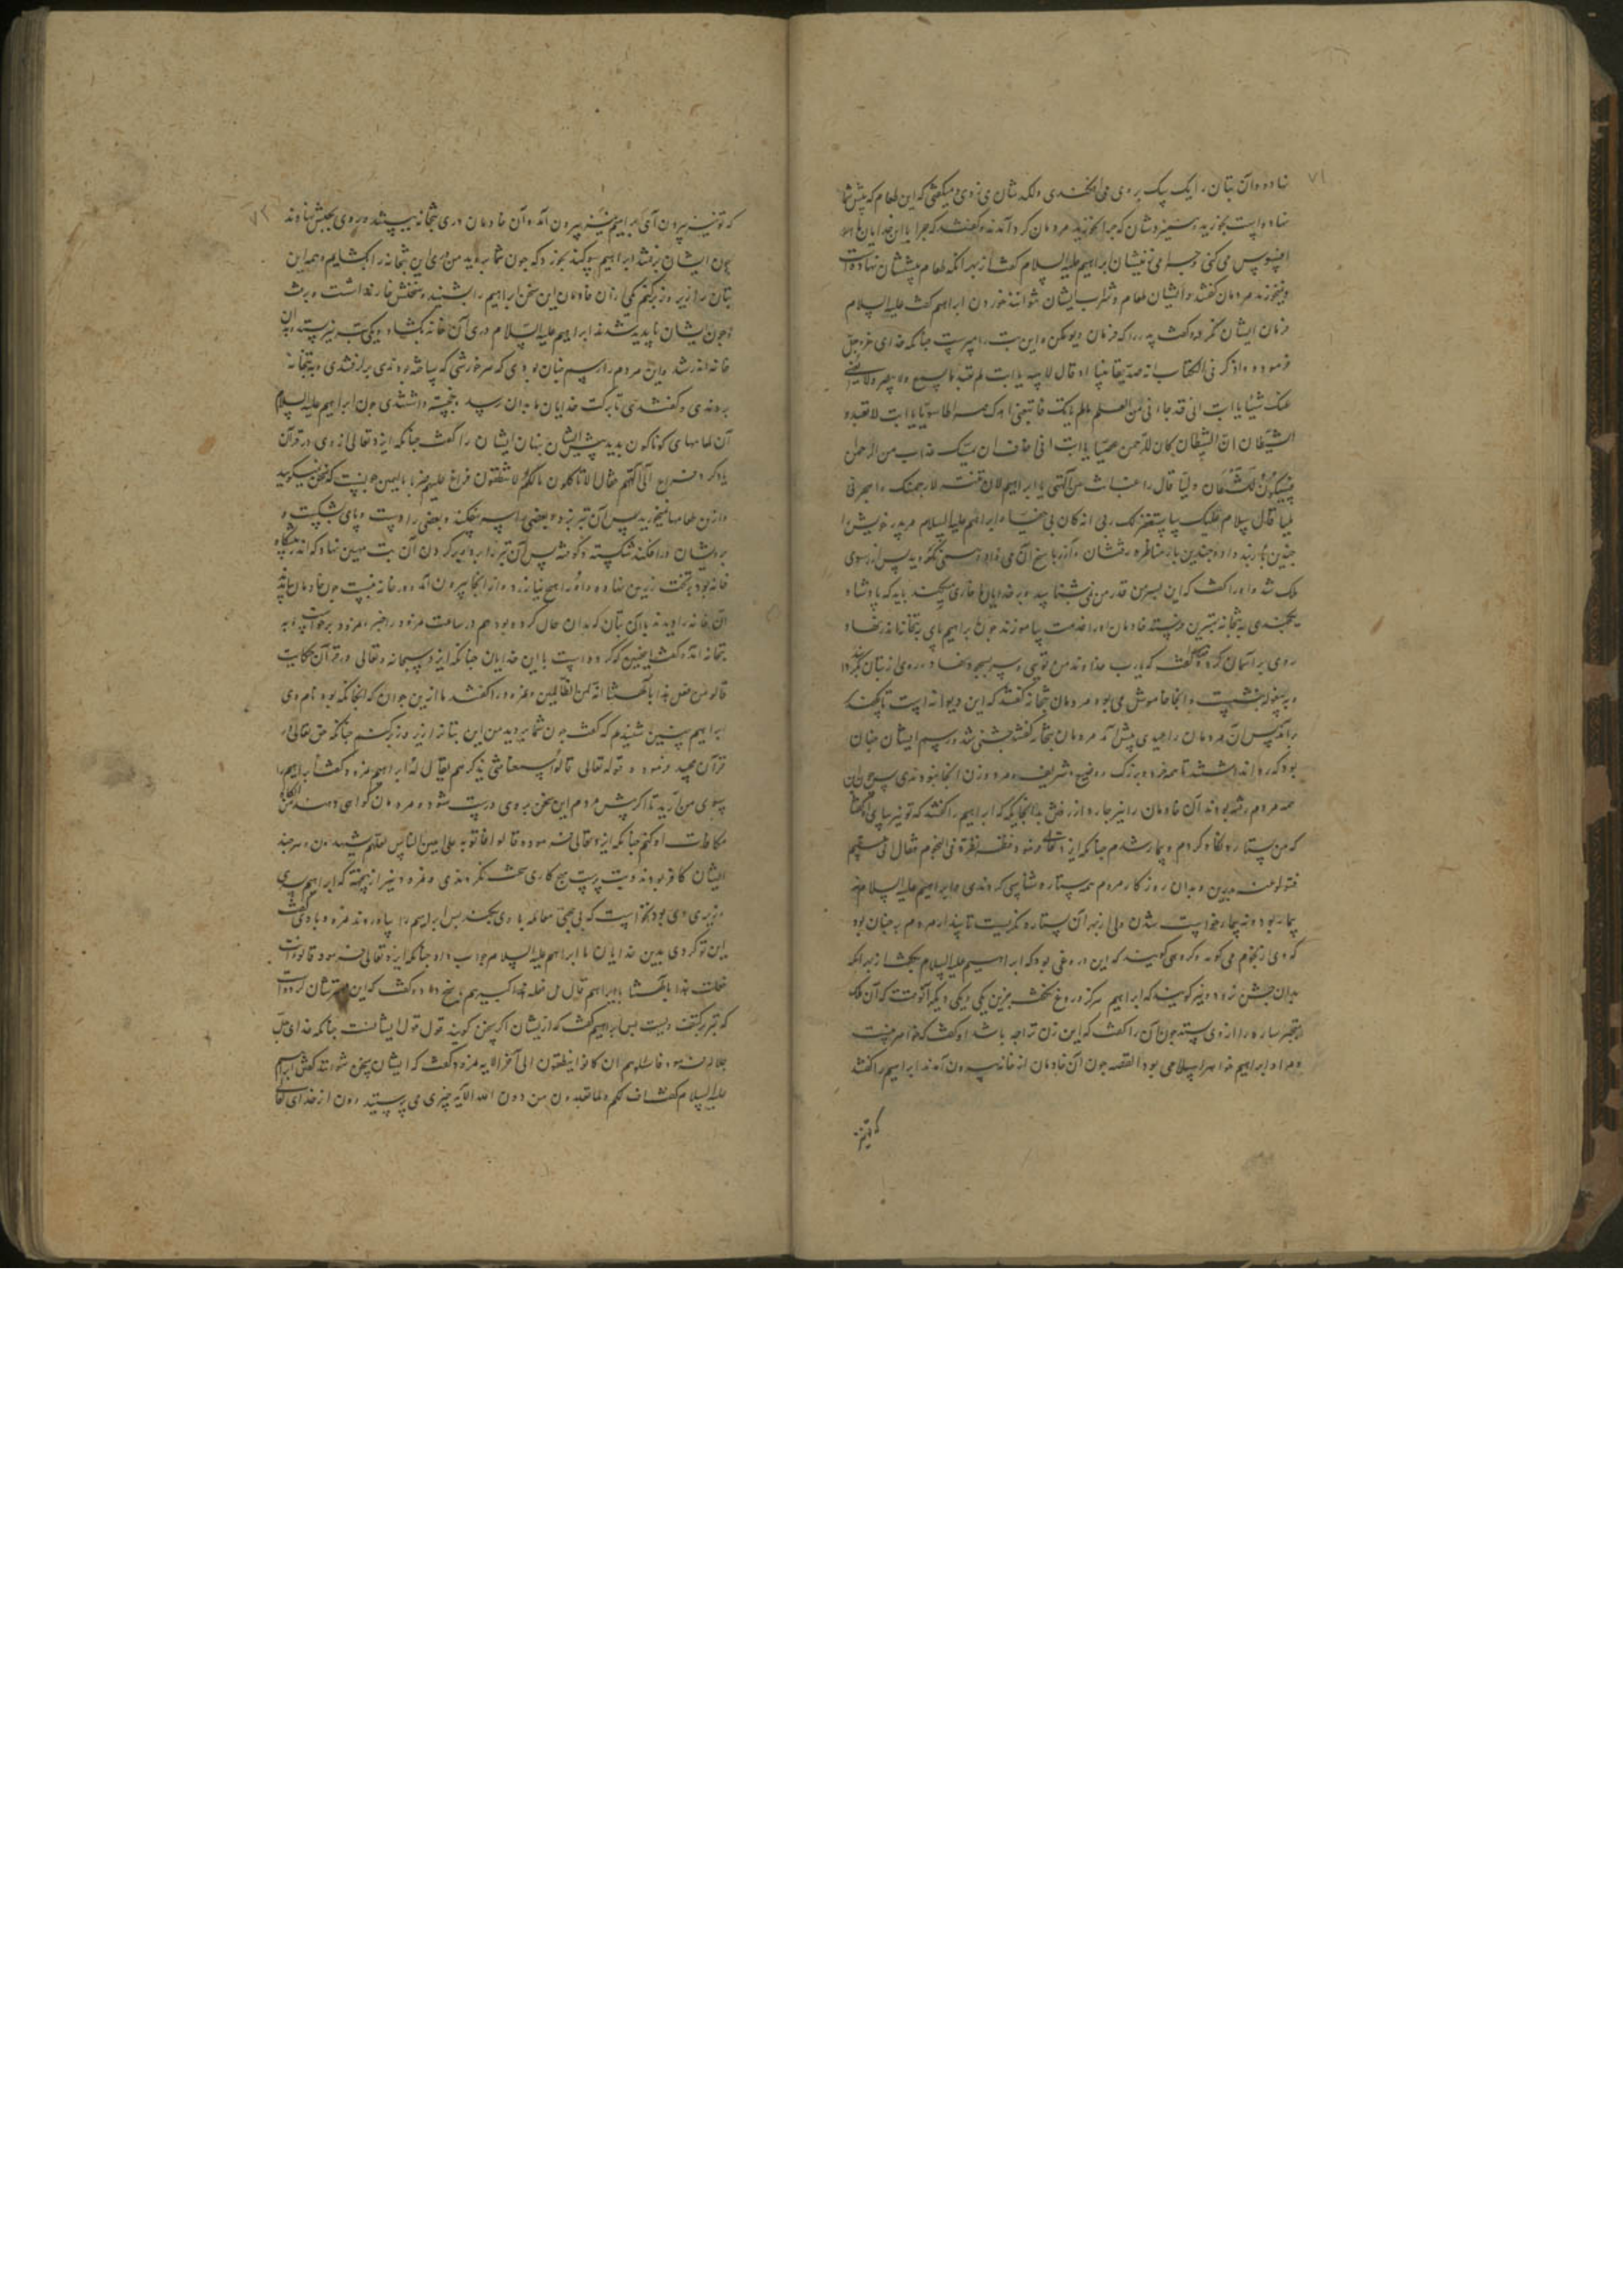 نهاده و آن بتان را یک یک بر وی می افکندی و لکد شان می زدی و میکفتی که این طعام که پیش شما
نهاده است بخورید و ستیزه شان که چرا نخورید مردمان کرد آمدند و کفتند که چرا با این خدایان ما
افسوس می کنی و چرا می زنیشان ابراهیم علیه السلام کفت از بهر انکه طعام پیششان نهاده است
و نخورند مردمان کفتند و ایشان طعام و شراب ایشان نتوانند خوردن ابراهیم کفت علیه السلام
فرمان ایشان نکرد و کفت پدر را که فرمان دیو مکن و این بت را مپرست چنانکه خدای عز و جل
فرمود و اذکر فی الکتاب انه صدیقا نبیا اذ قال لابیه یا ابت لم تعبد ما لا یسمع و لا یبصر و لا یغنی
عنک شیئا یا ابت انی قد جاءنی من العلم ما لم یاتک فاتبعنی اهدک صراطا سویا یا ابت لا تعبد
الشیطان ان الشیطان کان للرحمن عصیا یا ابت انی اخاف ان یمسک عذاب من الرحمن
فتکون للشیطان ولیا قال اراغب انت عن آلهتی یا ابراهیم لان لم تنته لارجمنک و اهجرنی
ملیا قال سلام علیک ساستغفر لک ربی انه کان بی حفیا و ابراهیم علیه السلام مر پدر خویش را
چنین پند داد و چندین بار مناظره رفتشان و آزر پاسخ آن می داد و نمی نکروید پس آزر سوی
ملک شد و او را کفت که این پسر من قدر من نمی شناسد و بر خدایان ما خواری میکند باید که پادشاه
بتخانه خادمان او را خدمت بیاموزند چون ابراهیم پای بتخانه اندر نهاد
روی بر آسمان کرد و کفت که یارب خداوند من توئی و سر بسجود نهاد و روی از بتان بکردانید
و به بیغوله بنشست و آنجا خاموش می بود مردمان بتخانه کفتند که این دیوانه است
پس آن مردمان را عیدی پیش آمد مردمان بتخانه کفتند جشنی شد و رسم ایشان چنان
بود که تا همه خرد و بزرک و وضیع و شریف و مرد و زن آنجا بودندی پس چون
همه مردم رفته بودند آن خادمان را نیز چاره از رفتن بدانجایکه که ابراهیم را کفتند که تو نیز بیای کفتا
که من ستاره نکاه کردم و بیمار شدم چنانکه ایزد تعالی فرمود فنظر نظرة فی النجوم فقال انی سقیم
فتولوا عنه مدبرین و بدان روزکار مردم همه ستاره شناسی کردندی و ابراهیم علیه السلام نه
بیمار بود و نه بیمار خواست شدن ولی از بهر آن ستاره نکریست تا پندارد مردم چنان بود
که وی از نجوم می کوید و کروهی کویند که این دروغی بود که ابراهیم علیه السلام بکفت از بهر انکه
بدان جشن نرود و نیز کویند که ابراهیم هرکز دروغ نکفت جز این یکی و یکی دیکر آنوقت که آن ملک
ساره را از وی بستد چون آن را کفت که این زن ترا چه باشد او کفت که خواهر منست
و مراد ابراهیم خواهر اسلامی بود القصه چون آن خادمان از خانه بیرون آمدند ابراهیم را کفتند
که تو نیز
که تو نیز بیرون آی ابراهیم نیز بیرون آمد و آن خادمان دری بتخانه ببستند و روی بجشن نهادند
چون ایشان برفتند ابراهیم سوکند بخورد که چون شما بروید من دری این بتخانه را بکشایم و همه این
بتان را زیر و زبر کنم یکی از آن خادمان این سخن ابراهیم را بشنید و سخنش خوار داشت و برفت
و چون ایشان ناپدید شدند ابراهیم علیه السلام دری آن خانه بکشاد و یکی تبر و بدان
خانه اندر شد و این مردم را رسم چنان بودی که هر خورشی که ساخته بودندی برکرفتندی و به بتخانه
بردندی و کفتندی تا برکت خدایان ما بدان رسد داشتندی چون ابراهیم علیه السلام
آن طعامهای کوناکون بدید پیش ایشان بتان ایشان را کفت چنانکه ایزد تعالی از وی در قرآن
یاد کرد فراغ الی آلهتهم فقال الا تاکلون ما لکم لا تنطقون فراغ علیهم ضربا بالیمین چونست که سخن نمیکویید
و ازین طعامها نمیخورید پس آن تبر بزد و بعضی را سر بفکند و بعضی را دست و پای شکست و
برویشان در افکند شکسته و کوفته پس آن تبر را بر کردن آن بت مهین نهاد که اندر پیشکاه
خانه بود بر تخت زرین نهاده و او را هیچ نیازرد و از آنجا بیرون آمد و در خانه ببست چون خادمان
آن خانه را دیدند با آن بتان که بدان حال کرده بود هم در ساعت نمرود را خبر نمرود برخواست و به
بتخانه آمد و کفت اینچنین که کرده است با این خدایان چنانکه ایزد سبحانه و تعالی در قرآن حکایت
قالوا من فعل هذا بآلهتنا انه لمن الظالمین و نمرود را کفتند ما ازین جوان که آنجا نکه بود نام وی
ابراهیم چنین شنیدیم که کفت چون شما بروید من این بتانرا زیر و زبر کنم چنانکه حق تعالی در
قرآن مجید فرمود قوله تعالی قالوا سمعنا فتی یذکرهم یقال له ابراهیم نمرود کفت ابراهیم را
بسوی من آرید تا اکر مردم این سخن بر وی درست شود و مردمان کواهی دهند من
مکافات او کنم چنانکه ایزد تعالی فرمود قالوا فاتوا به علی اعین الناس لعلهم یشهدون و هرچند
ایشان کافر بودند و بت پرست هیچ کاری سخت نکردندی و نمرود نیز از بیخته که ابراهیم پسر
وزیر وی بود نخواست که بی حجتی معامله با وی بکند پس ابراهیم را بیاوردند نمرود با وی کفت
این تو کردی بدین خدایان ما ابراهیم علیه السلام جواب داد چنانکه ایزد تعالی فرمود قالوا ءانت
فعلت هذا بآلهتنا یا ابراهیم قال بل فعله کبیرهم پاسخ داد و کفت که این مهترشان کرده است
که تبر بر کتف ویست پس ابراهیم کفت که از ایشان اکر سخن کویند قول قول ایشانست چنانکه خدای جل
جلاله فرمود فاسئلوهم ان کانوا ینطقون الی آخر الایه نمرود کفت که ایشان سخن شنوند کفتش ابراهیم
علیه السلام کفت اف لکم و لما تعبدون من دون الله الآیه چیزی می پرستید دون از خدای تعالی